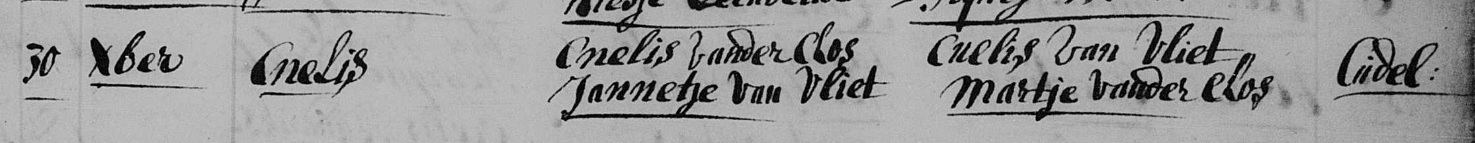 30 Xber Cnelis Cnelis vander Clos Cnelis van Vliet Cudel:
Jannetje van Vliet Martje vander Clos